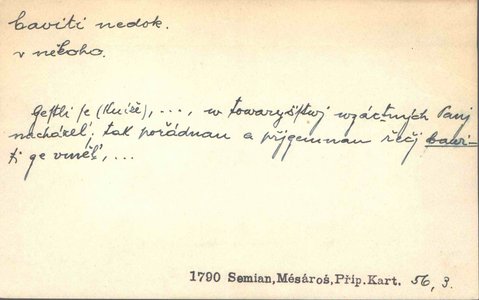 baviti nedok.
v někoho.
Gestli se (Kníže), ..., w towaryšstwj wzáctných Panj
nacházel, tak pořádnau a přjgemnau řečj bawi-
ti ge uměl, ...
1790 Semian, Mésároš, Příp. Kart. 56, 3.